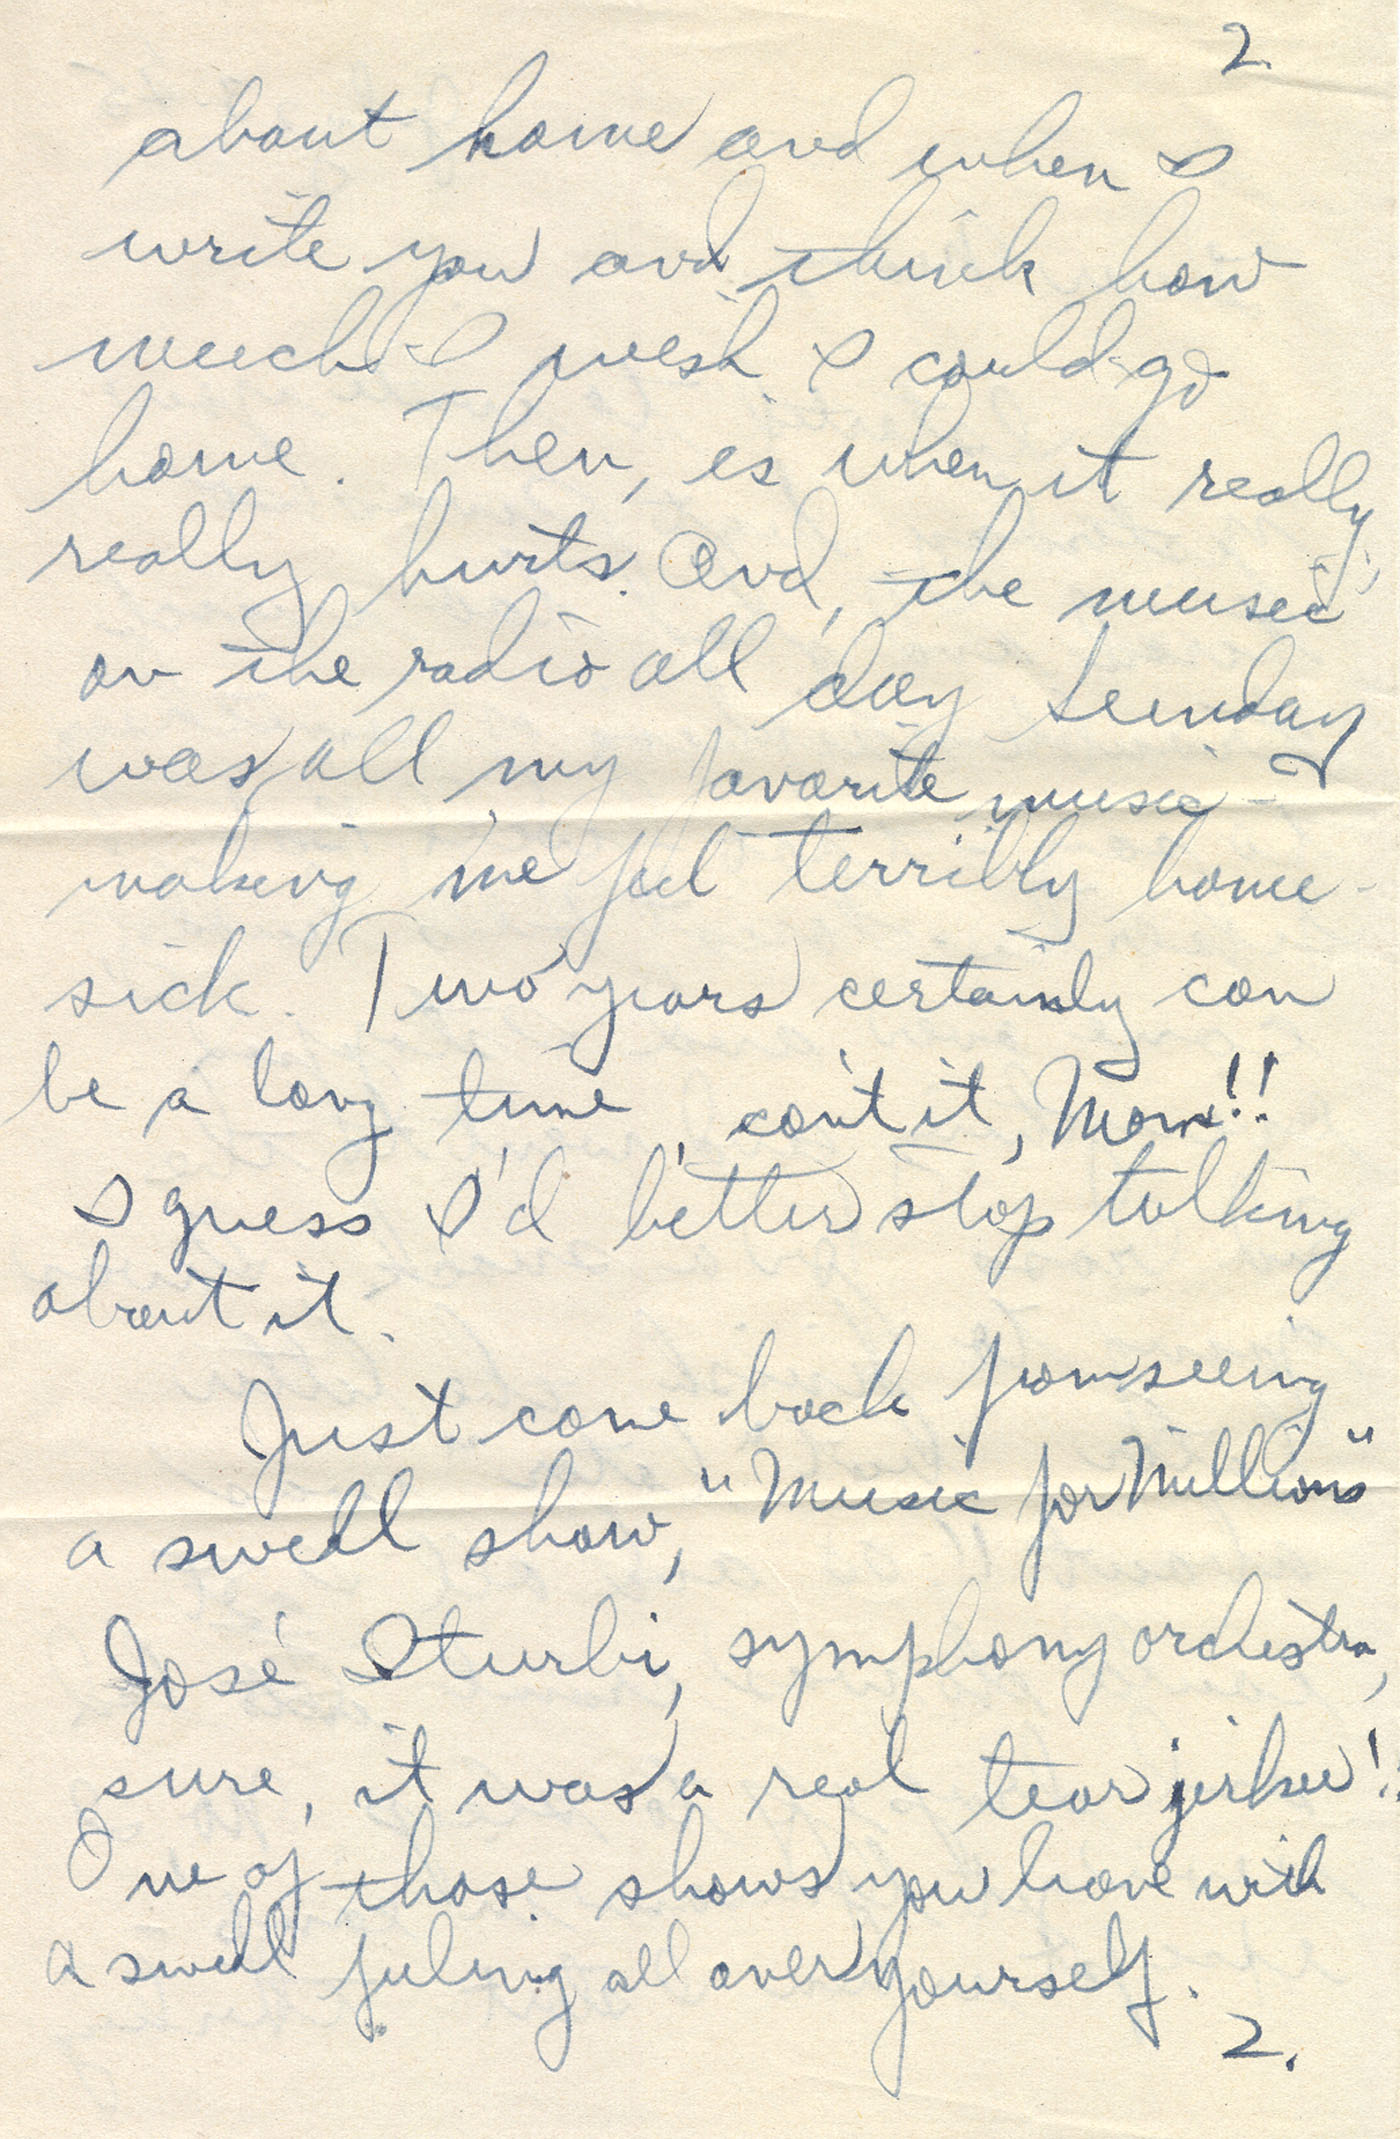 2.
about home and when I
write you and think how
much I wish I could go
home. Then, is when it really
really hurts. And, the music
on the radio all day Sunday
was all my favorite music -
making me feel terribly home-
sick. Two years certainly can
be a long time, can't it, Mom!!
I guess I'd better stop talking
about it.
Just came back from seeing
a swell show, "Music for Millions"
José Iturbi, symphony orchestra,
sure, it was a real tear jerker!!
One of those shows you leave with
a swell feeling all over yourself.
2.